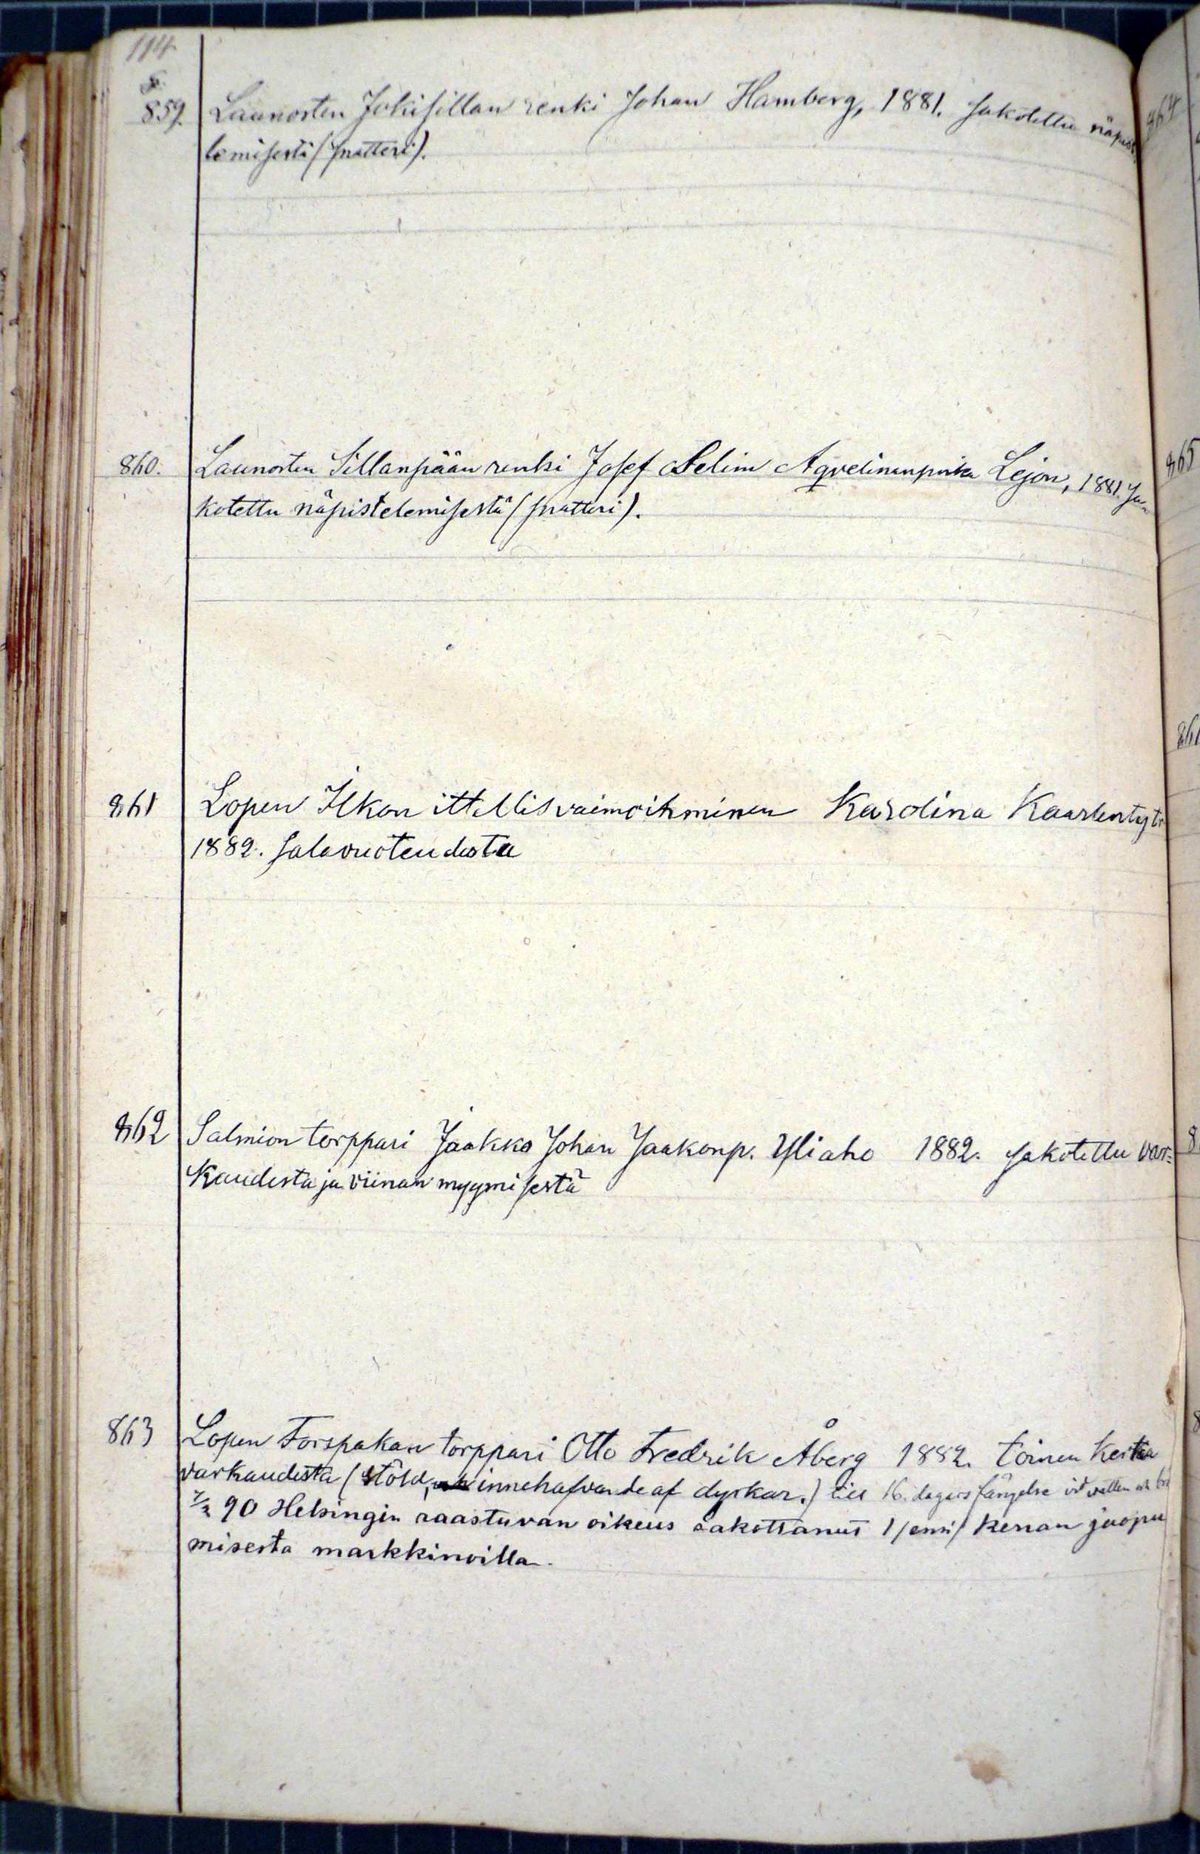 114
§.
859. Launosten Jokisillan renki Johan Hamberg, 1881. sakotettu näpiste
lemisestä (snatteri).
860. Launosten Sillanpään renki Josef Selim Aqvelinanpoika Lejon, 1881. Sa-
kotettu näpistelemisestä (snatteri).
861 Lopen Ilkon ittellisvaimoihminen Karolina Kaarlentyt
1882. salavuoteudesta
862 Salmion torppari Jaakko Johan Jaakonp. Yliaho 1882. sakotettu var=
kaudesta ja viinan myymisestä
863 Lopen Forspakan torppari Otto Fredrik Åberg 1882. toinen kerta
varkaudesta (stöld, innehafvande af dyrkar.) till 16. dagars fängelse vid vatten och
90 Helsingin raastuvan oikeus sakottanut 1/ensi/ kerran juopu
misesta markkinoilla.
864
865